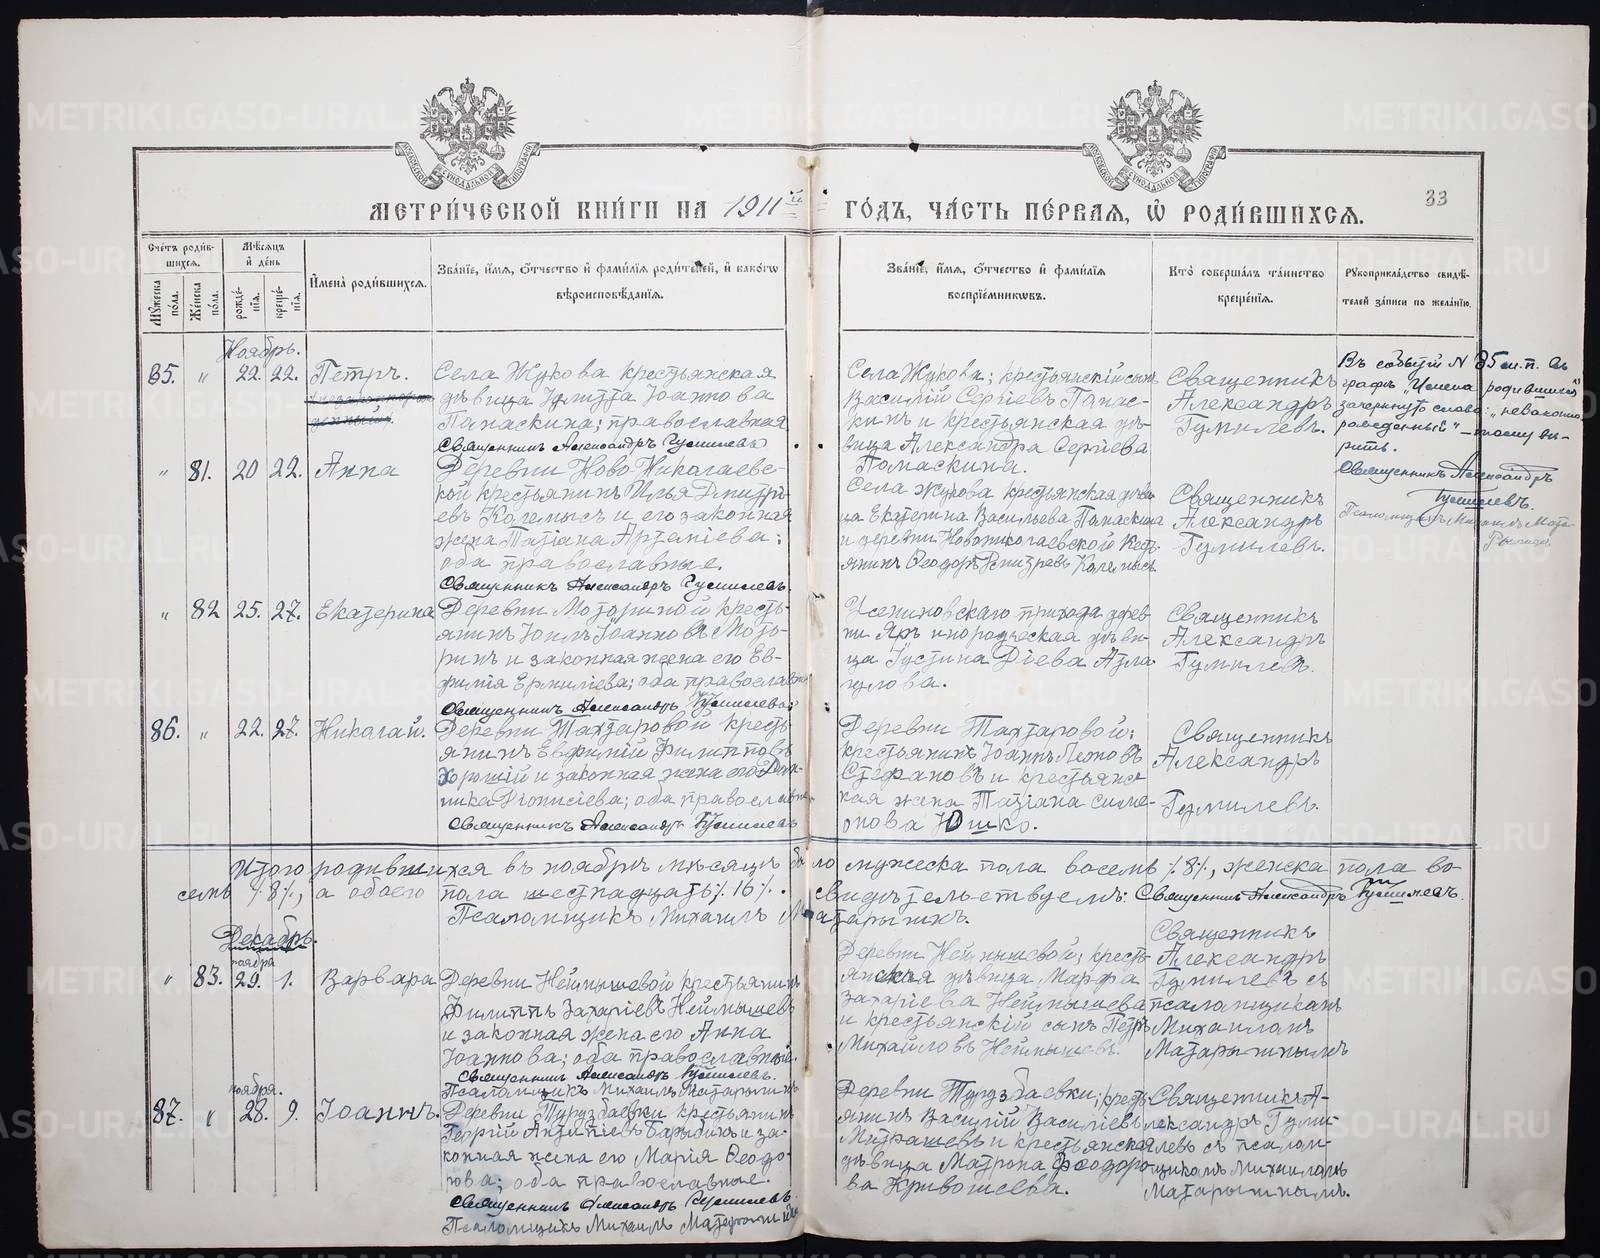 МЕТРИ́ЧЕСКОЙ КНИ́ГИ НА 1911й ГО́ДЪ, ЧА́СТЬ ПЕ́РВАЯ, Ѡ РОДИ́ВШИХСЯ.
33
Сче́тъ роди́вшихся.
Му́жеска по́ла.
Же́нска по́ла.
Мѣ́сяцъ и́ де́нь
рожде́нїя.
креще́нїя.
И҆мена̀ роди́вшихся.
Зва́нїе, и҆́мя, о҆́тчество и҆ фами́лїя роди́телей, и҆ како́гѡ
вѣроисповѣ́данїя.
Зва́нїе, и҆́мя, о҆́тчество и҆ фами́лїя
воспрїе́мникѡвъ.
Кто̀ соверша́лъ та́инство
креще́нїя.
Рꙋкоприкла́дство свидѣ́-
телей за́писи по жела́нїю.
Ноябрь.
85. " 22. 22. Петръ.
Села Жукова крестьянская
дѣвица Іулитта Іоаннова
Памаскина; православная
Священникъ Александръ Гумилевъ
Села Жукова; крестьянскій сынъ
Василій Сергіевъ Памас-
кинъ и крестьянская дѣ-
вица Александра Сергіева
Помаскина.
Священникъ
Александръ
Гумилевъ.
Въ событіи № 85 м.п. въ
графѣ "Имена родившихся"
зачеркнуто слово: "незаконно
рожденный" – тому вѣ-
рить.
Священникъ Александръ
Гумилевъ.
Псаломщикъ Михаилъ Мата-
рыгинъ
" 81. 20 22. Анна
Деревни Ново-Николаевс-
кой крестьянинъ Илья Дмитрі-
евъ Колемысъ и его законная
жена Татіана Артаміева;
оба православные.
Священникъ Александръ Гумилевъ.
Села Жукова крестьянская дѣви-
ца Екатерина Васильева Памаскина
и деревни Новониколаевской крест-
янинъ Ѳеодоръ Дмитріевъ Колемысъ
Священникъ
Александръ
Гумилевъ.
" 82 25. 27. Екатерина
Деревни Моториной кресть-
янинъ Іоилъ Іоанновъ Мото-
ринъ и законная жена его Ев-
фимія Ермиліева; оба православные
Священникъ Александръ Гумилевъ
прихода дерев-
ни Яръ инородческая дѣви-
ца Іустина Діева
Священникъ
Александръ
Гумилевъ.
86. " 22. 27. Николай.
Деревни Тахтаровой кресть-
янинъ Евфимій Филипповъ
Хорошій и законная жена его Дом-
ника Діонисіева; оба православные
Священникъ Александръ Гумилевъ
Деревни Тахтаровой;
крестьянинъ Іоаннъ Леоновъ
Стефановъ и крестьянс-
кая жена Татіана Симе-
онова Юшко.
Священникъ
Александръ
Гумилевъ.
Итого родившихся въ ноябрѣ мѣсяцѣ было мужеска пола восемь /8/, женска пола во-
семь /8/, а обоего пола шестнадцать /16/. Свидѣтельствуемъ: Священникъ Александръ Гумилевъ.
Псаломщикъ Михаилъ Матарыгинъ.
Декабрь.
ноября
" 83. 29. 1. Варвара
Деревни Неймышевой крестьянинъ
Филиппъ Захаріевъ Неймышевъ
и законная жена его Анна
Іоаннова; оба православные.
Священникъ Александръ Гумилевъ.
Псаломщикъ Михаилъ Матарыгинъ
Деревни Неймышевой; кресть-
янская дѣвица Марфа
Захаріева Неймышева
и крестьянскій сынъ Петръ
Михайловъ Неймышевъ.
Священникъ
Александръ
Гумилевъ съ
псаломщикомъ
Михаиломъ
Матарыгинымъ
ноября.
87. " 28. 9. Іоаннъ.
Деревни Турузбаевки крестьянинъ
Георгій Антипіевъ Барыбинъ и за-
конная жена его Марія Ѳеодо-
рова; оба православные.
Священникъ Александръ Гумилевъ.
Псаломщикъ Михаилъ Матарыгинъ
Деревни Турузбаевки; кресть-
янинъ Василій Василіевъ
Митрашевъ и крестьянская
дѣвица Матрона Ѳеодоро-
ва Кривошеева.
Священникъ А-
лександръ Гуми-
левъ съ псалом-
щикомъ Михаиломъ
Матарыгинымъ.